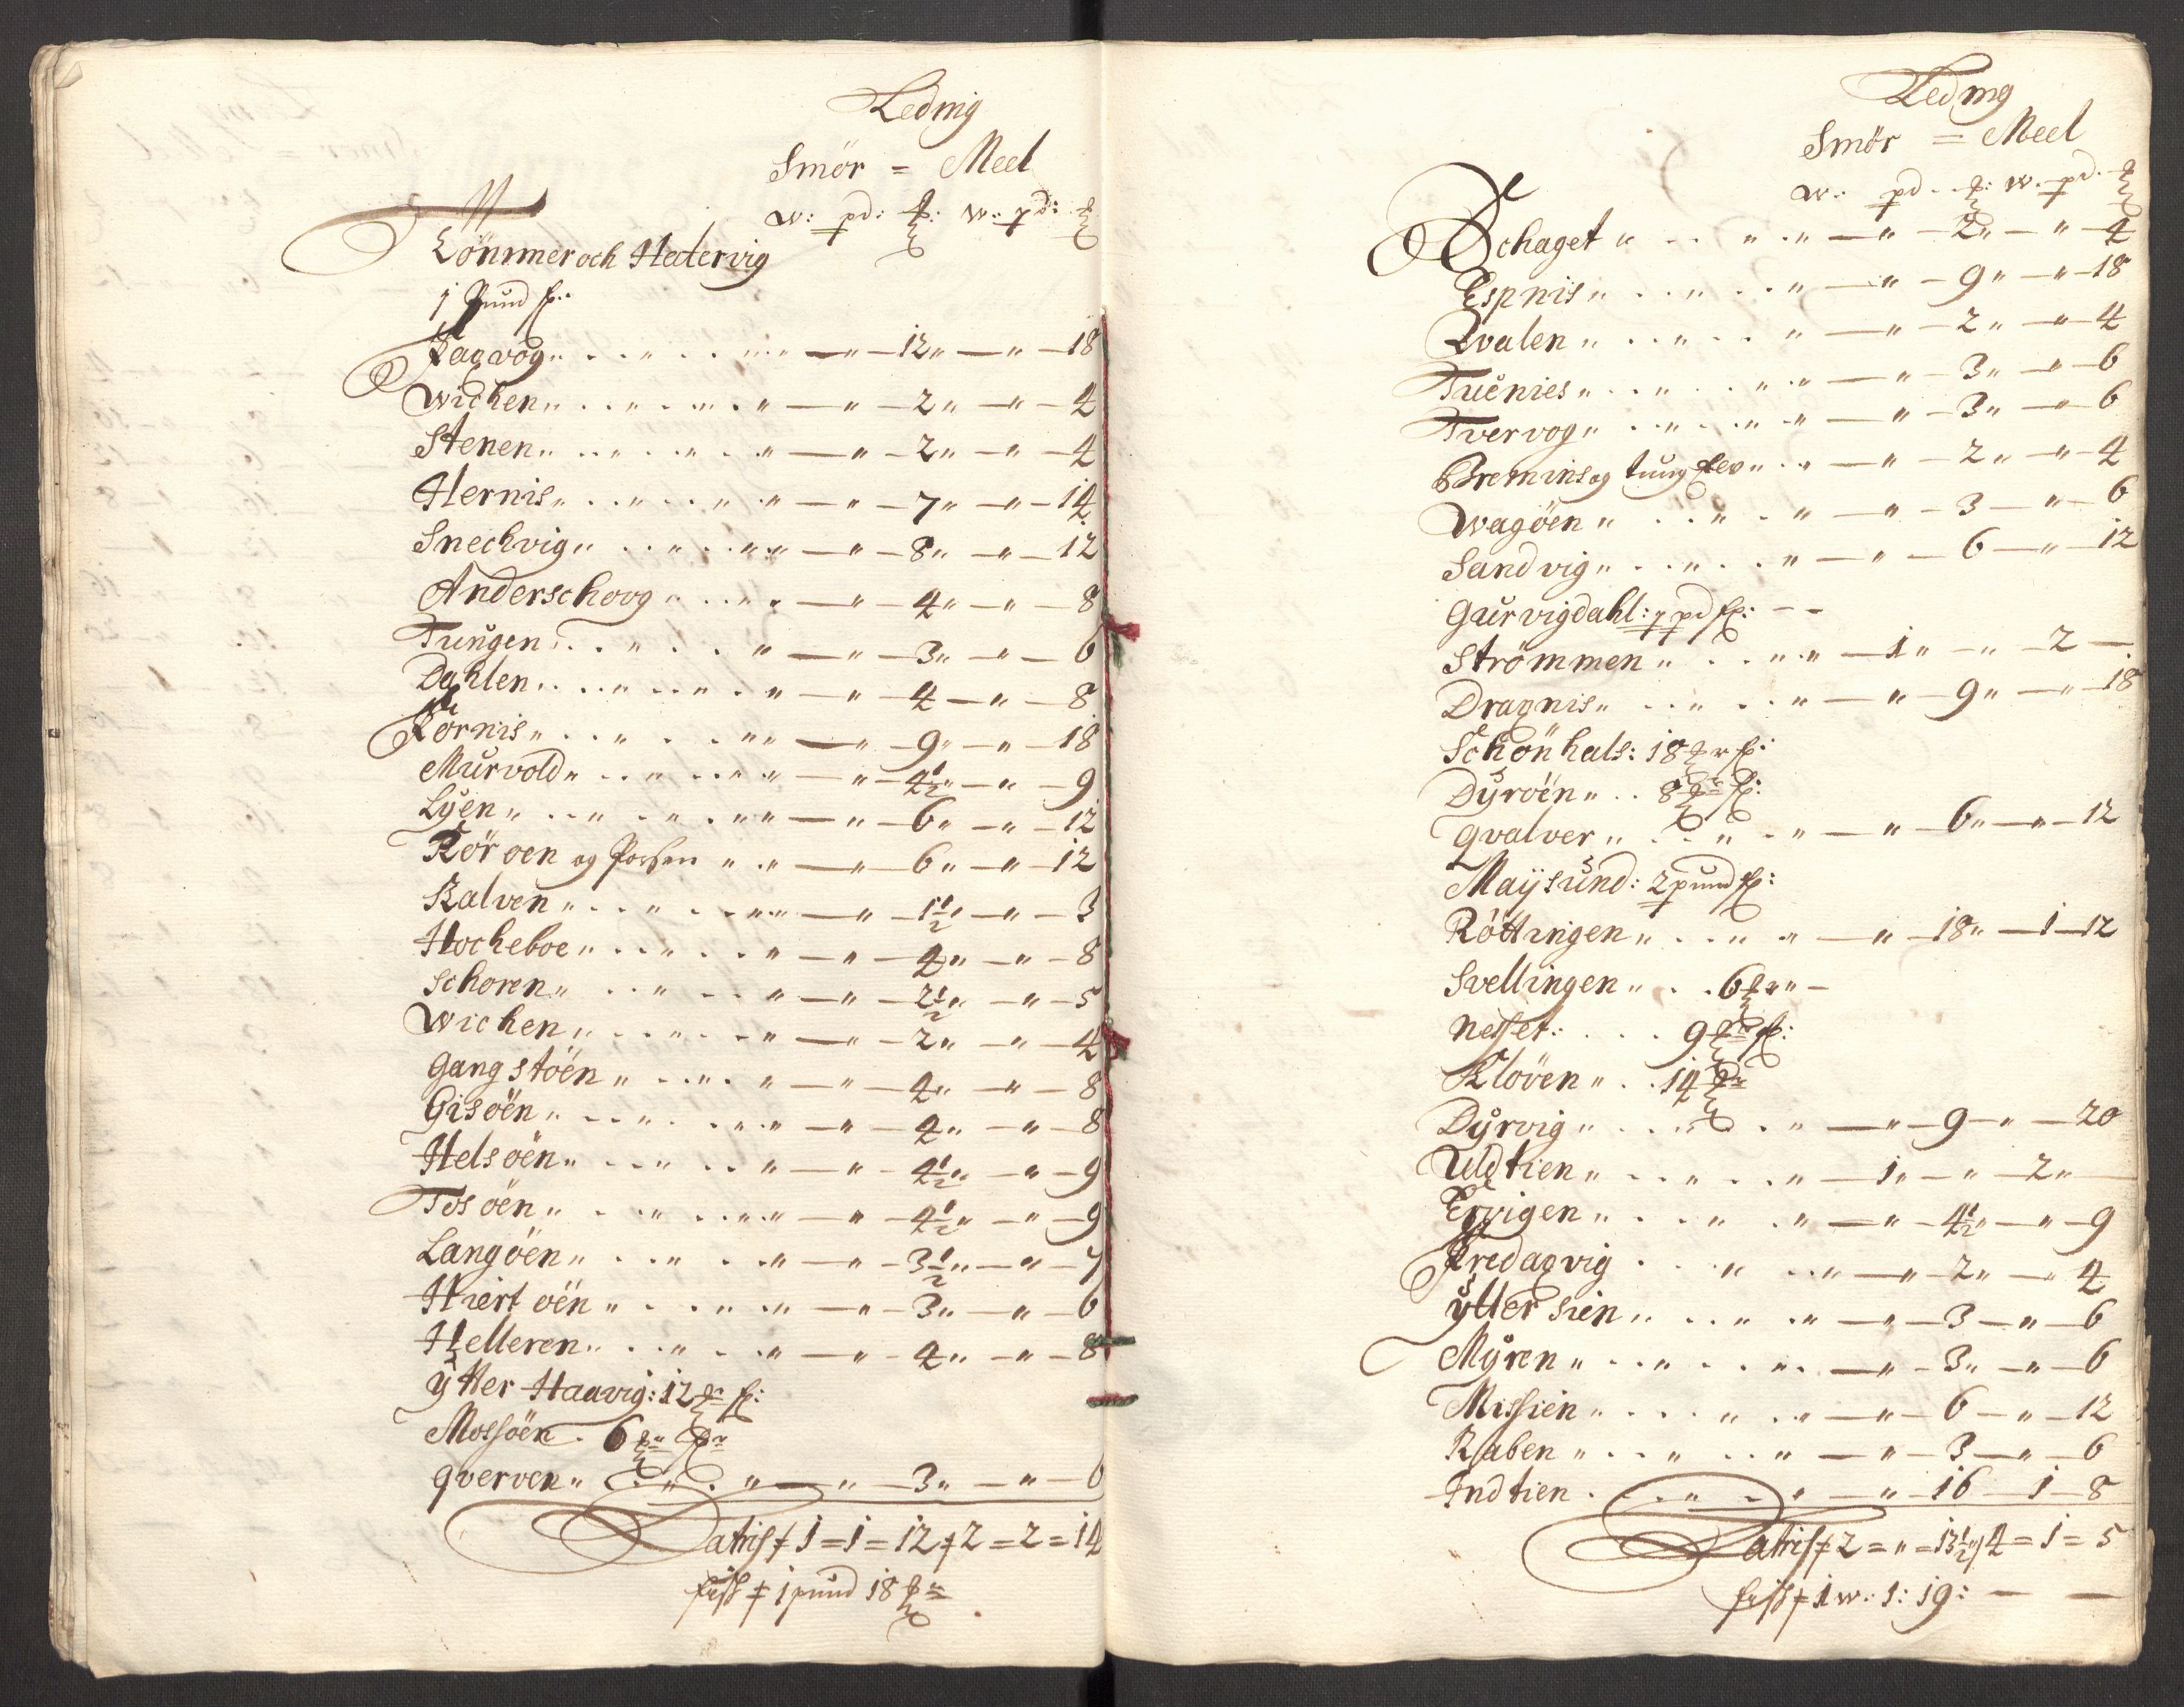 Leding
Smör = Meel
w: pd: ℔: w: pd: ℔
Lömmer och Hedervig
j Pund f:
Fagvog " — " — 12 " — " — 18
Wichen " — " — 2 " — " — 4
Stenen " — " — 2 " — " — 4
Hernis " — " — 7 " — " — 14
Snechvig " — " — 8 " — " — 12
Anderschoog " — " — 4 " — " — 8
Tungen " — " — 3 " — " — 6
Dahlen " — " — 4 — " — 8
Fornis " — " — 9 " — " — 18
Murvold " — " — 4½ " — " — 9
Lyen " — " — 6 " — " — 12
Röroen og Porsen " — " — 6 " — " — 12
Kalven " — " — 1½ " — " — 3
Hocheboe " — " — 4 " — " — 8
Schoren " — " — 2½ " — " — 5
Wichen " — " — 2 " — " — 4
Gangstöen " — " — 4 " — " — 8
Gisöen " — " — 4 " — " — 8
Helsöen " — " — 4½ " — " — 9
Tosöen " — " — 4½ " — " — 9
Langöen " — " — 3½ " — " — 7
Hiertöen " — " — 3 " — " — 6
Helleren " — " — 4 " — " — 8
Ytter Haavig: 12 ℔r f:
Mossöen . 6 ℔r
Qverven " — " — 3 " — " — 6
Latris f 1 = 1 = 12 f 2 = 2 = 14
fish f 1 pund 18 ℔r
Leding
Smör = Meel
w: pd: ℔: w: pd: ℔
Schaget " — " — 2 " — " — 4
Espnis " — " — 9 " — " — 18
Qvalen " — " — 2 " — " — 4
Tuenies " — " — 3 " — " — 6
Tvervog " — " — 3 " — " — 6
Bremins og tung — " — 2 " — " — 4
Wagöen " — " — 3 — " — 6
Sandvig " — " — 6 — " — 12
Gurvigdahl: 7 pd f: — —
Strömmen " — 1 " — " — 2 —
Dragnis " — " — 9 " — " — 18
Schönhals: 18 ℔r f:
Dyröen " . . 8 ℔r f:
Qvalver " — " — 6 " — " — 12
Maysund: 2 pund f:
Röttingen " — " — 18 " — 1 — 12
Svellingen " . . 6 ℔r " —
Nesset: . . . 9 ℔r f:
Klöven " . . 14 ℔r
Dyrvig " — " — 9 — " — 20
Uldtien " — 1 " — " — 2 " —
Ervigen " — " — 4½ " — " — 9
Fredagvig — " — 2 " — " 4
Ytter Sien " — " — 3 — " — 6
Myren " — " — 3 " — " — 6
Missien " — " — 6 — " — 12
Raben " — " — 3 — " — 6
Indtien — " — 16 — 1 — 8
Latris f 2 = " = 13½ f 4 = 1 = 5
fish f 1 w: 1: 19: — —